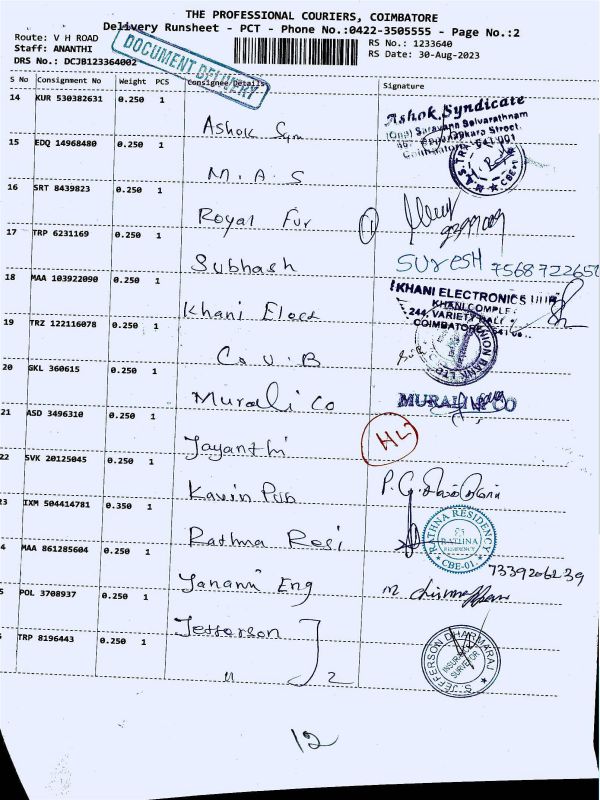 THE PROFESSIONAL COURIERS, COIMBATORE
Delivery Runsheet - PCT - Phone No.:0422-3505555 - Page No.:2
Route: V H ROAD
RS No.: 1233640
Staff: ANANTHI
RS Date: 30-Aug-2023
DRS No.: DCJB123364002
DOCUMENT DELIVERY
S No Consignment No Weight PCS Consignee/Details Signature
14 KUR 530382631 0.250 1
Ashok Sym
Ashok Syndicate
(Opp) Saravana Selvarathnam
15 EDQ 14968480 0.250 1
M. A. S
CBE-1
16 SRT 8439823 0.250 1
Royal Fur 1
17 TRP 6231169 0.250 1
Subhash
SURESH 7568722650
18 MAA 103922090 0.250 1
Khani Elect
KHANI ELECTRONICS
KHANI COMPLE
244, VARIETY HALL
COIMBATORE
19 TRZ 122116078 0.250 1
C. U. B
UNION BANK LTD
20 GKL 360615 0.250 1
Murali Co
MURALI & CO
21 ASD 3496310 0.250 1
Jayanthi
HL
22 SVK 20125045 0.250 1
Kavin Pub
P. G.
23 IXM 504414781 0.350 1
Rathna Resi
RATHNA RESIDENCY
RATHNA
RESIDENCY
CBE-01
7339206239
4 MAA 861285604 0.250 1
Janani Eng
5 POL 3708937 0.250 1
Jefferson
TRP 8196443 0.250 1
" 2
S. JEFFERSON DHARMARAJ
INSURANCE
SURVEYOR
12